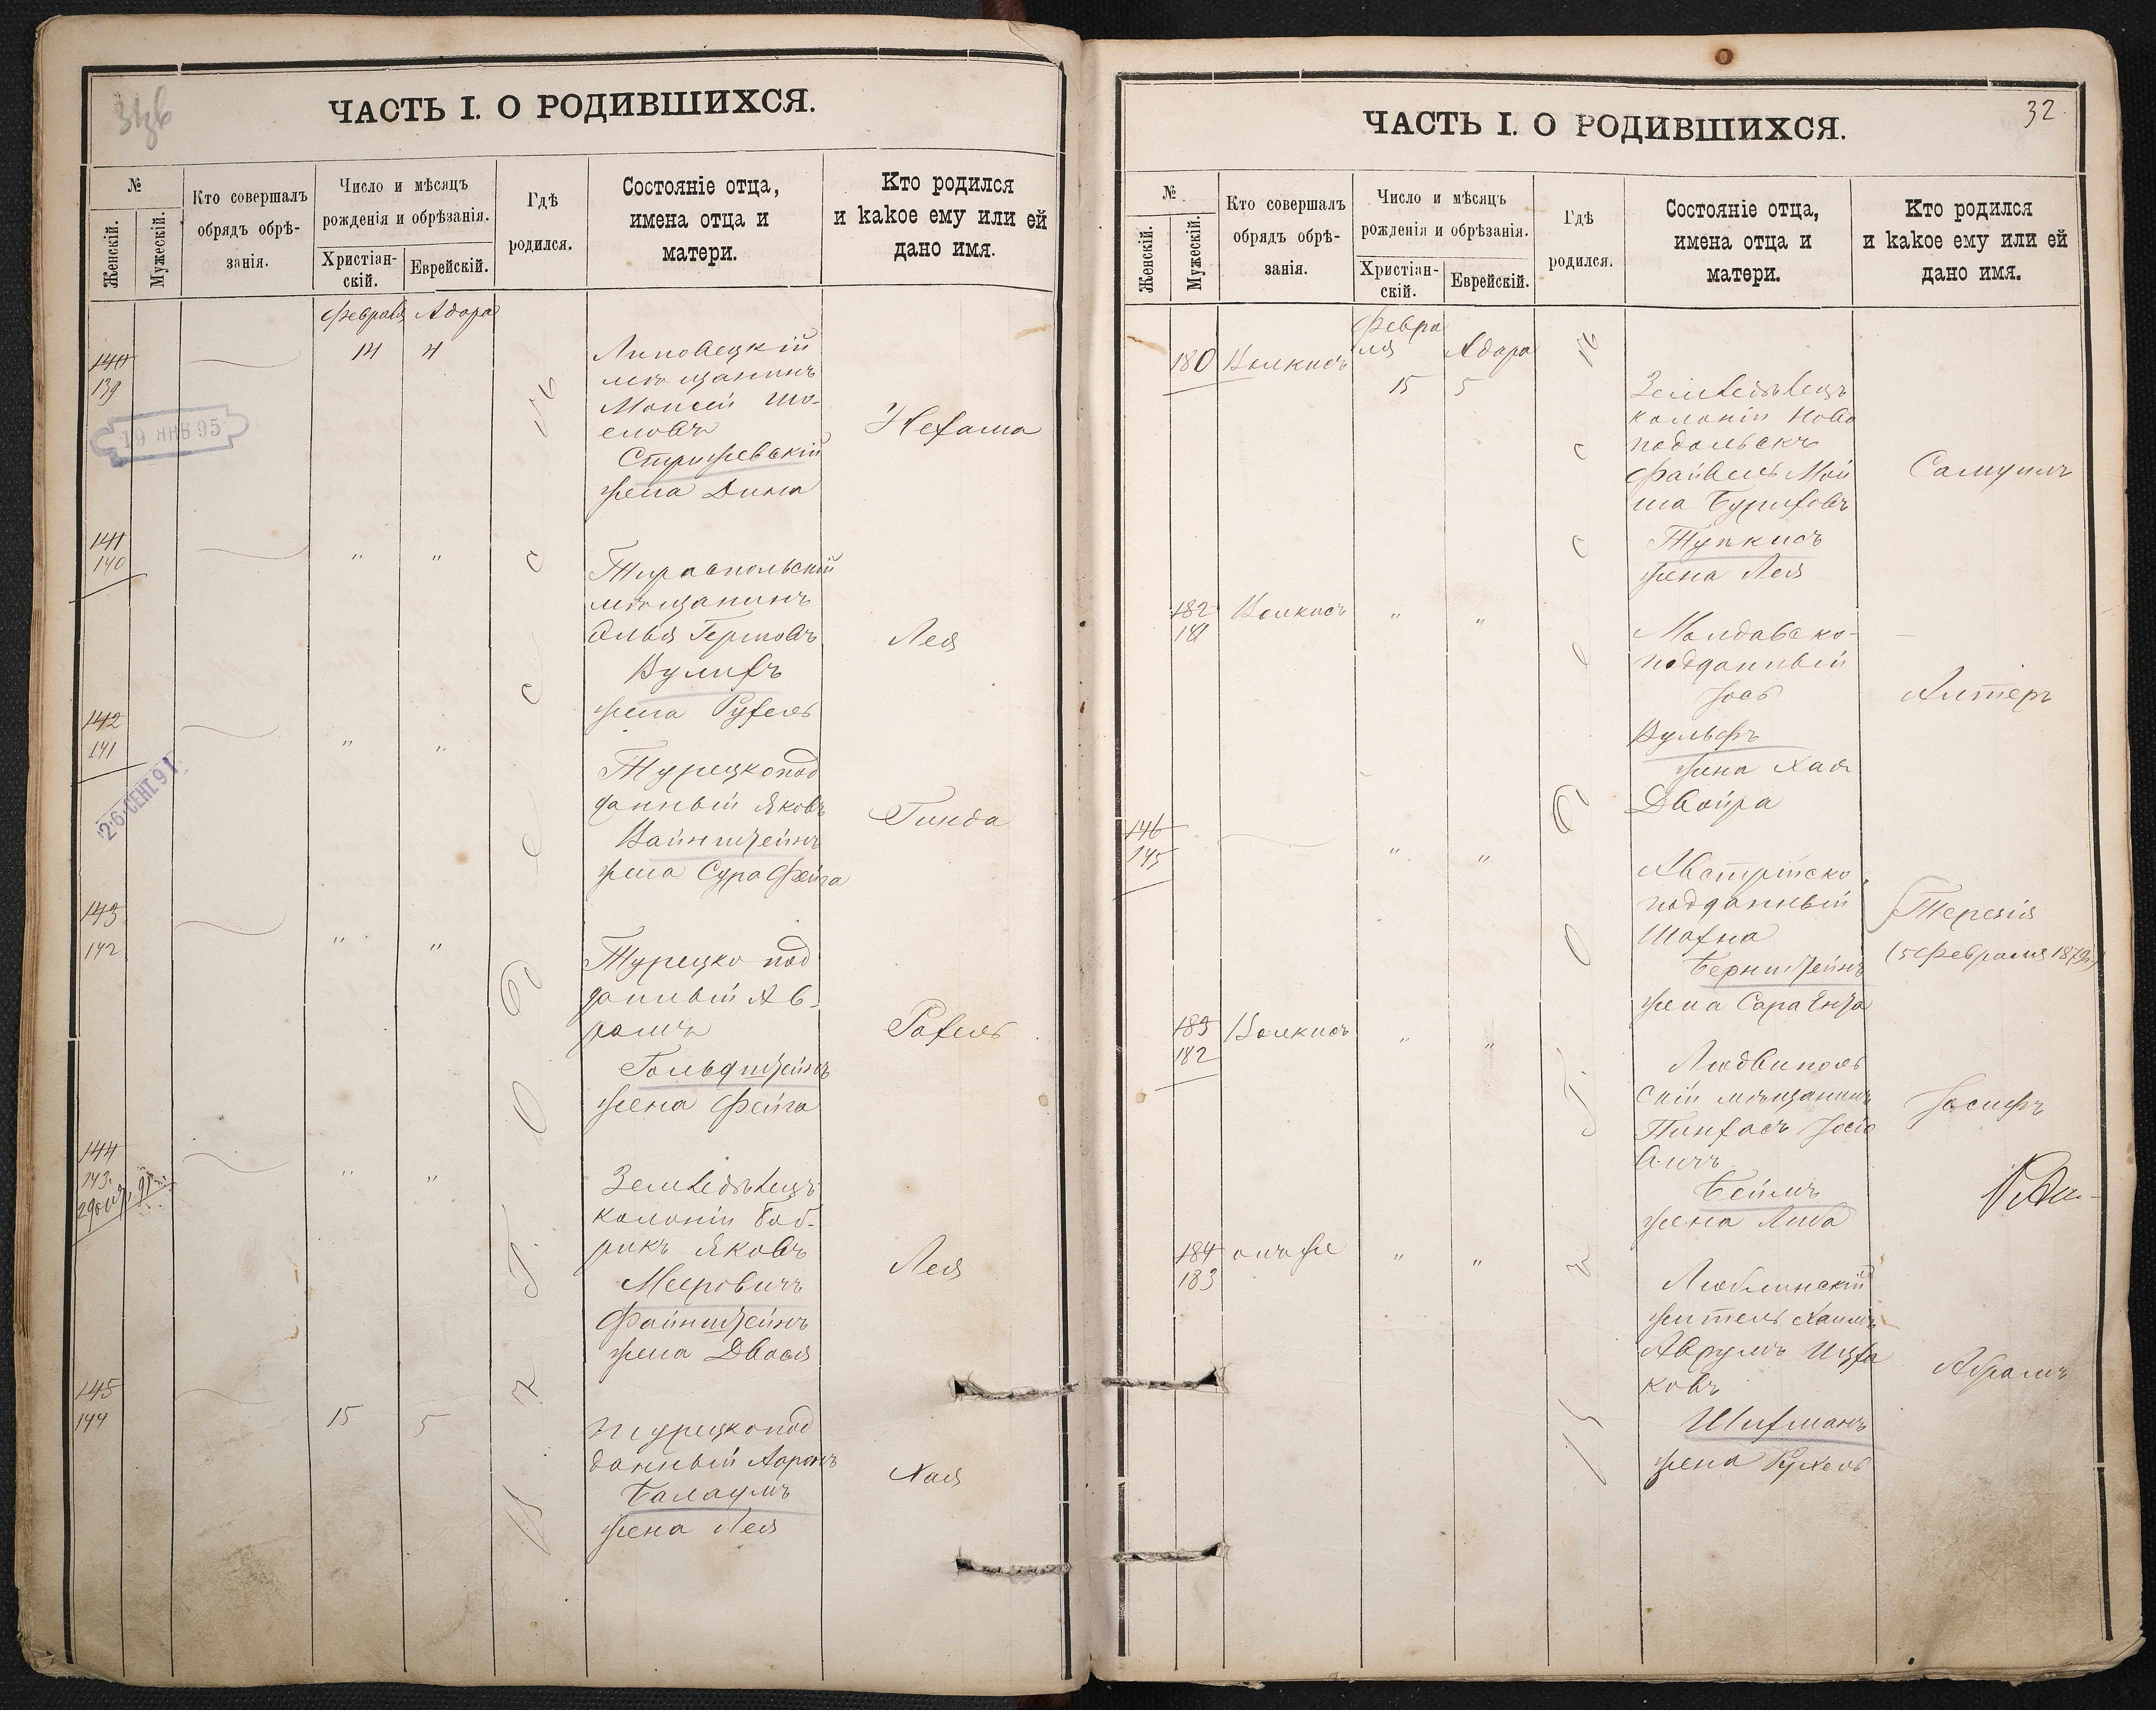 ЧАСТЬ I. О РОДИВШИХСЯ.
№
Женскій.
Мужескій.
Кто совершалъ
обрядъ обрѣ-
занія.
Число и мѣсяцъ
рожденія и обрѣзанія.
Христіан-
скій.
Еврейскій.
Гдѣ
родился.
Состояніе отца,
имена отца и
матери.
Кто родился
и какое ему или ей
дано имя.
Февраля Адара
140
139
14 4
Липовецкій
мѣщанинъ
Моисей Шо-
еловъ
Стришевскій
жена Дина
Нехама
19 ЯНВ 95
141
140
" "
Тираспольскій
мѣщанинъ
Элья Гершовъ
Вулихъ
жена Рухель
Лея
142
141
" "
26 СЕНТ. 91
Турецкопод
данный Яковъ
Вайнштейнъ
жена Сура Фейга
Гинда
143
142
" "
Турецко под
данный Ав-
рамъ
Гольдштейнъ
жена Фейга
Рахель
144
143
" "
Земледѣлецъ
колоніи Боб-
рикъ Яковъ
Мееровичъ
Файнштейнъ
жена Двося
Лея
145
144
15 5
Турецкопод
данный Ааронъ
Балаумъ
жена Лея
Хая
Одесса
32
ЧАСТЬ I. О РОДИВШИХСЯ.
№
Женскій.
Мужескій.
Кто совершалъ
обрядъ обрѣ-
занія.
Число и мѣсяцъ
рожденія и обрѣзанія.
Христіан-
скій.
Еврейскій.
Гдѣ
родился.
Состояніе отца,
имена отца и
матери.
Кто родился
и какое ему или ей
дано имя.
Февра
ля Адара
180 Волкисъ
15 5
Земледѣлецъ
колоніи Ново
подольскъ
Файвель Мой
ша Бурихов
Тупкисъ
жена Лея
Самуилъ
182
181
Волкисъ " "
Молдавско-
подданный
Іось
Вульфъ
жена Хая
Двойра
Алтеръ
146
145
" "
Австрійско
подданный
Шахна
Бернштейнъ
жена Сара Ента
Терезія
(5 Февраля 1879)
183
182
Волкисъ " "
Людвиполь
скій мѣщанинъ
Пинхасъ Іосіо
вичъ
Беймъ
жена Либа
Іосифъ
184
183
онъ же " "
Люблинскій
житель Хаимъ
Аврумъ Ицха
ковъ
Шифманъ
жена Рухель
Абрамъ